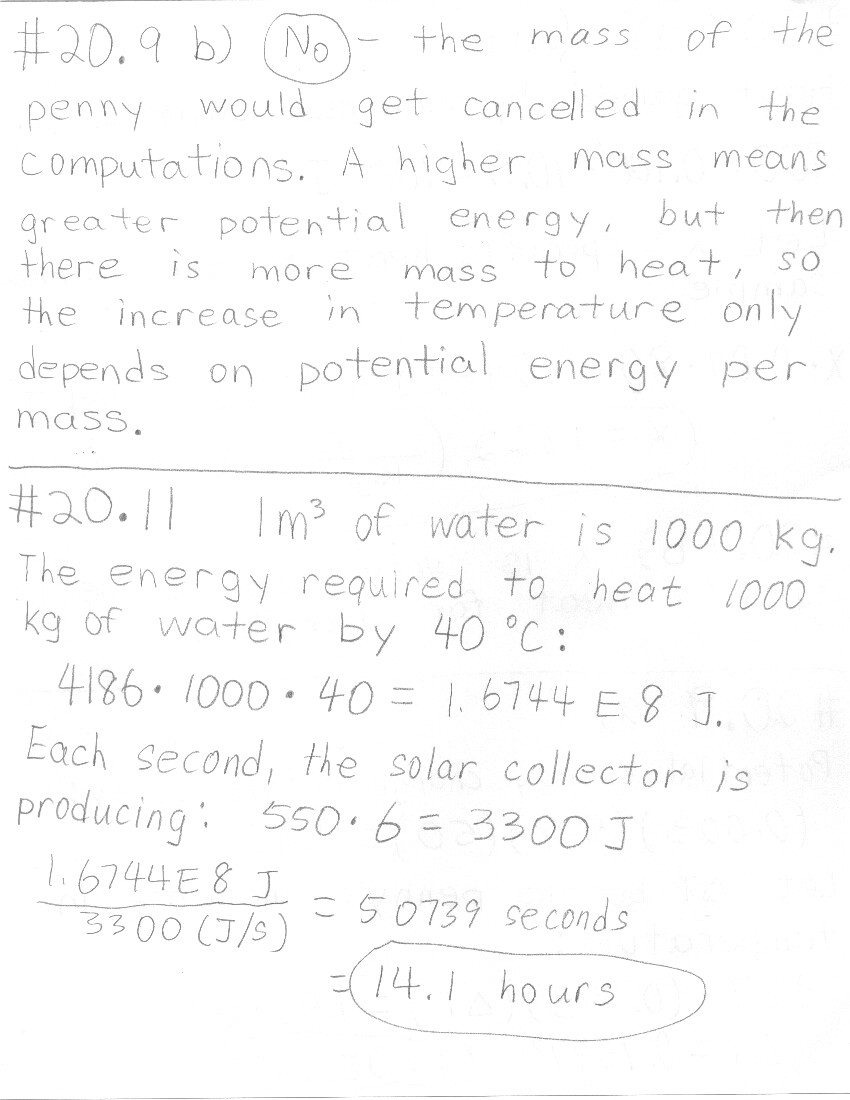 #20.9 b) No - the mass of the
penny would get cancelled in the
computations. A higher mass means
greater potential energy, but then
there is more mass to heat, so
the increase in temperature only
depends on potential energy per
mass.
#20.11 1m³ of water is 1000 kg.
The energy required to heat 1000
kg of water by 40 °C:
4186 · 1000 · 40 = 1.6744 E 8 J.
Each second, the solar collector is
producing: 550 · 6 = 3300 J
1.6744 E 8 J
3300 (J/s) = 50739 seconds
= 14.1 hours